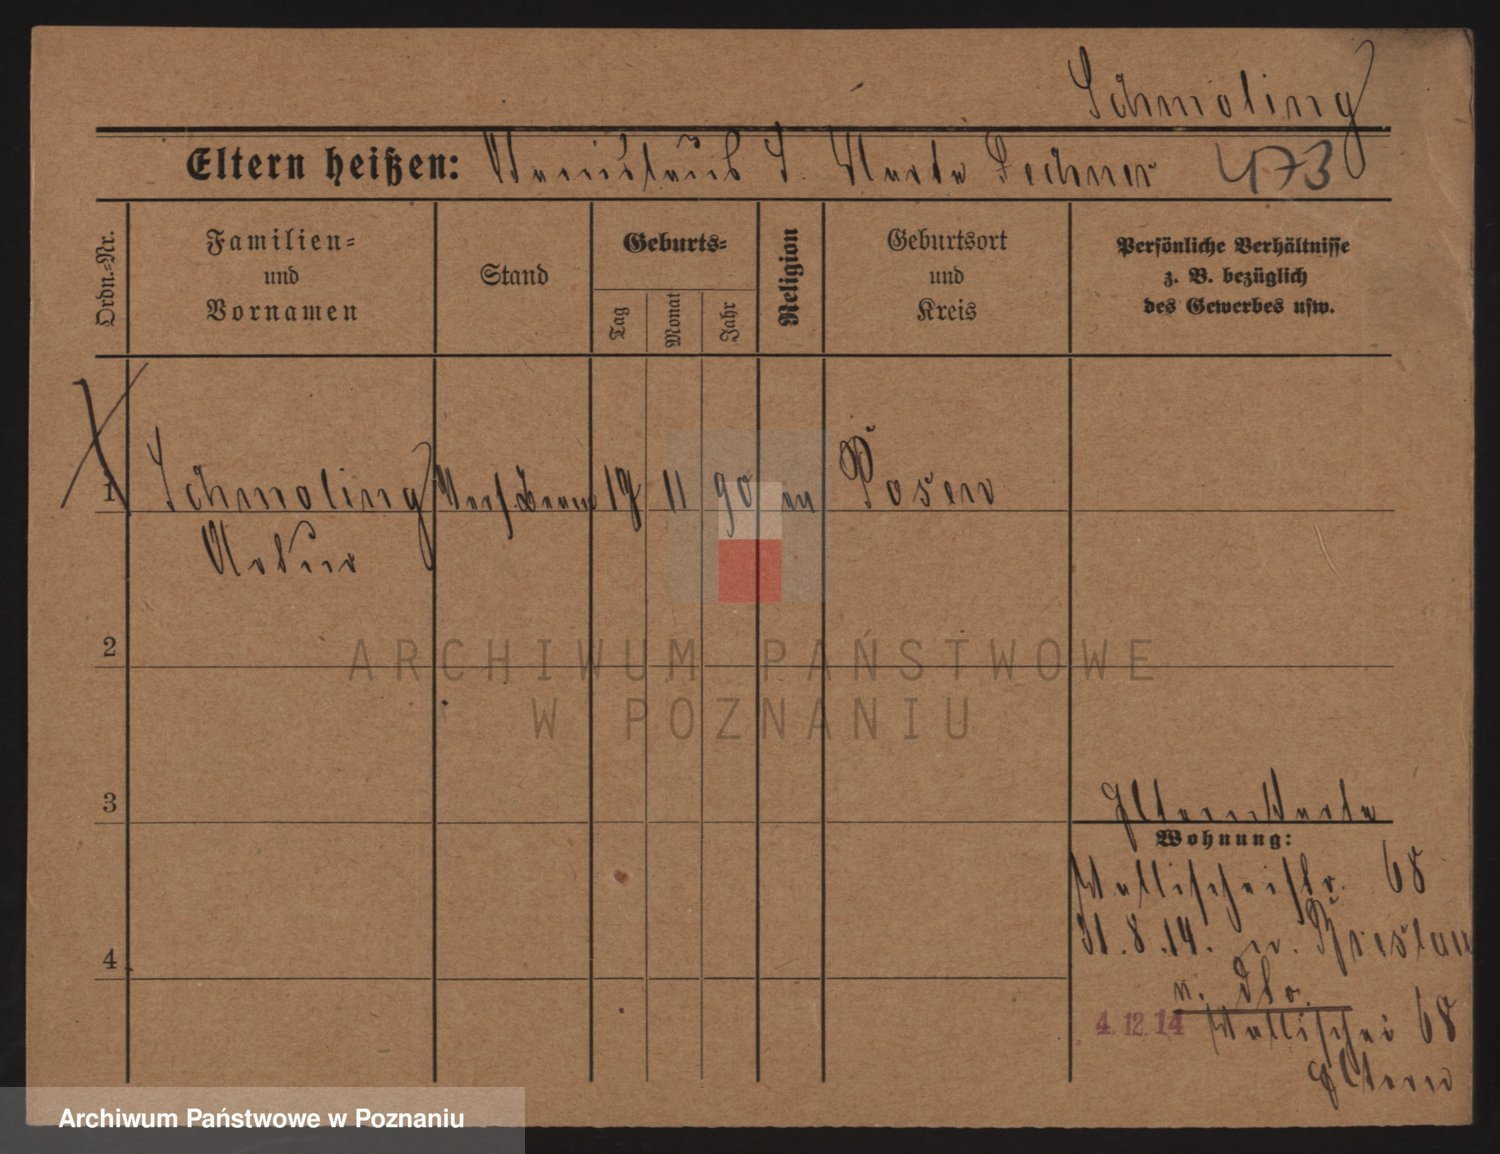 Schmoling
Eltern heißen: Stanislaus S. Marta Dechner 473
Ordn.=Nr.
Familien=
und
Vornamen
Stand
Geburts=
Tag
Monat
Jahr
Religion
Geburtsort
und
Kreis
Persönliche Verhältnisse
z. B. bezüglich
des Gewerbes usw.
1 Schmoling 19 11 90 Posen
Artur
2
3
4
Elternkarte
Wohnung:
Wallischeistr. 68
31.8.14. n. Breslau
v. dtr.
4.12.14 Wallischei 68
Eltern
ARCHIWUM PAŃSTWOWE
W POZNANIU
Archiwum Państwowe w Poznaniu